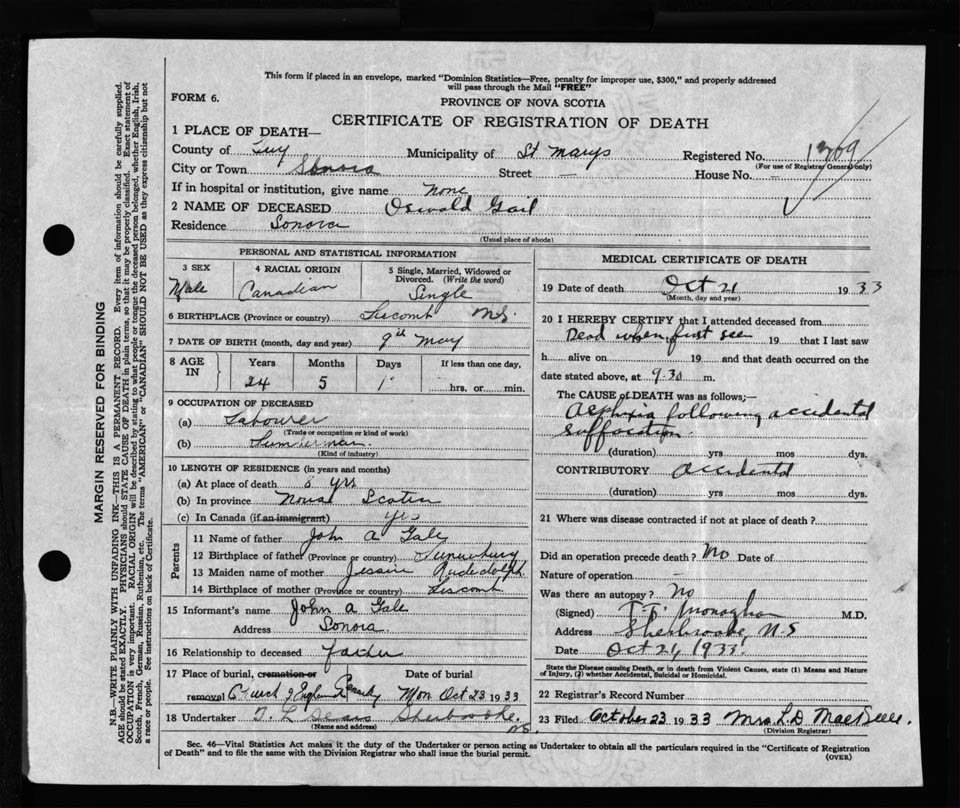 This form if placed in an envelope, marked "Dominion Statistics—Free, penalty for improper use, $300," and properly addressed
will pass through the Mail "FREE"
FORM 6.
PROVINCE OF NOVA SCOTIA
CERTIFICATE OF REGISTRATION OF DEATH
1 PLACE OF DEATH—
County of Guy Municipality of St Marys Registered No. 1369
(For use of Registrar General only)
City or Town Sonora Street — House No. -
If in hospital or institution, give name None
2 NAME OF DECEASED Oswald Gail
Residence Sonora
(Usual place of abode)
PERSONAL AND STATISTICAL INFORMATION
3 SEX 4 RACIAL ORIGIN 5 Single, Married, Widowed or Divorced. (Write the word)
Male Canadian Single
6 BIRTHPLACE (Province or country) Liscomb N.S.
7 DATE OF BIRTH (month, day and year) 9th May
8 AGE IN Years Months Days If less than one day,
24 5 hrs. or min.
9 OCCUPATION OF DECEASED
(a) Labourer
(Trade or occupation or kind of work)
(b)
(Kind of industry)
10 LENGTH OF RESIDENCE (in years and months)
(a) At place of death yrs
(b) In province Nova Scotia
(c) In Canada (if an immigrant) yes
Parents
11 Name of father John A Gale
12 Birthplace of father (Province or country)
13 Maiden name of mother Jessie
14 Birthplace of mother (Province or country) Liscomb
15 Informant's name John A Gale
Address Sonora
16 Relationship to deceased father
17 Place of burial, cremation or
removal Church of England Mon Oct 23 1933
18 Undertaker Sherbrooke
(Name and address) NS.
MEDICAL CERTIFICATE OF DEATH
19 Date of death Oct 21 1933
(Month, day and year)
20 I HEREBY CERTIFY that I attended deceased from
Dead when first seen 19 that I last saw
h alive on 19 and that death occurred on the
date stated above, at 9.30 m.
The CAUSE of DEATH was as follows;—
Asphixia following accidental
suffocation.
(duration) yrs mos dys.
CONTRIBUTORY accidental
(duration) yrs mos dys.
21 Where was disease contracted if not at place of death?
Did an operation precede death? No Date of
Nature of operation
Was there an autopsy? No
(Signed) Monaghan M.D.
Address Sherbrooke, N.S
Date Oct 21, 1933.
State the Disease causing Death, or in death from Violent Causes, state (1) Means and Nature
of Injury, (2) whether Accidental, Suicidal or Homicidal.
22 Registrar's Record Number
23 Filed October 23 1933 Mrs. L. D.
(Division Registrar)
Sec. 46—Vital Statistics Act makes it the duty of the Undertaker or person acting as Undertaker to obtain all the particulars required in the "Certificate of Registration
of Death" and to file the same with the Division Registrar who shall issue the burial permit.
(OVER)
MARGIN RESERVED FOR BINDING
N.B.—WRITE PLAINLY WITH UNFADING INK—THIS IS A PERMANENT RECORD. Every item of information should be carefully supplied.
AGE should be stated EXACTLY. PHYSICIANS should STATE CAUSE OF DEATH in plain terms, so that it may be properly classified. Exact statement of
OCCUPATION is very important. RACIAL ORIGIN will be described by stating to what people or tongue the deceased person belonged, whether English, Irish,
Scotch, French, German, Russian, Ruthenian, etc. The terms "AMERICAN" or "CANADIAN" SHOULD NOT BE USED as they express citizenship but not
a race or people. See instructions on back of Certificate.